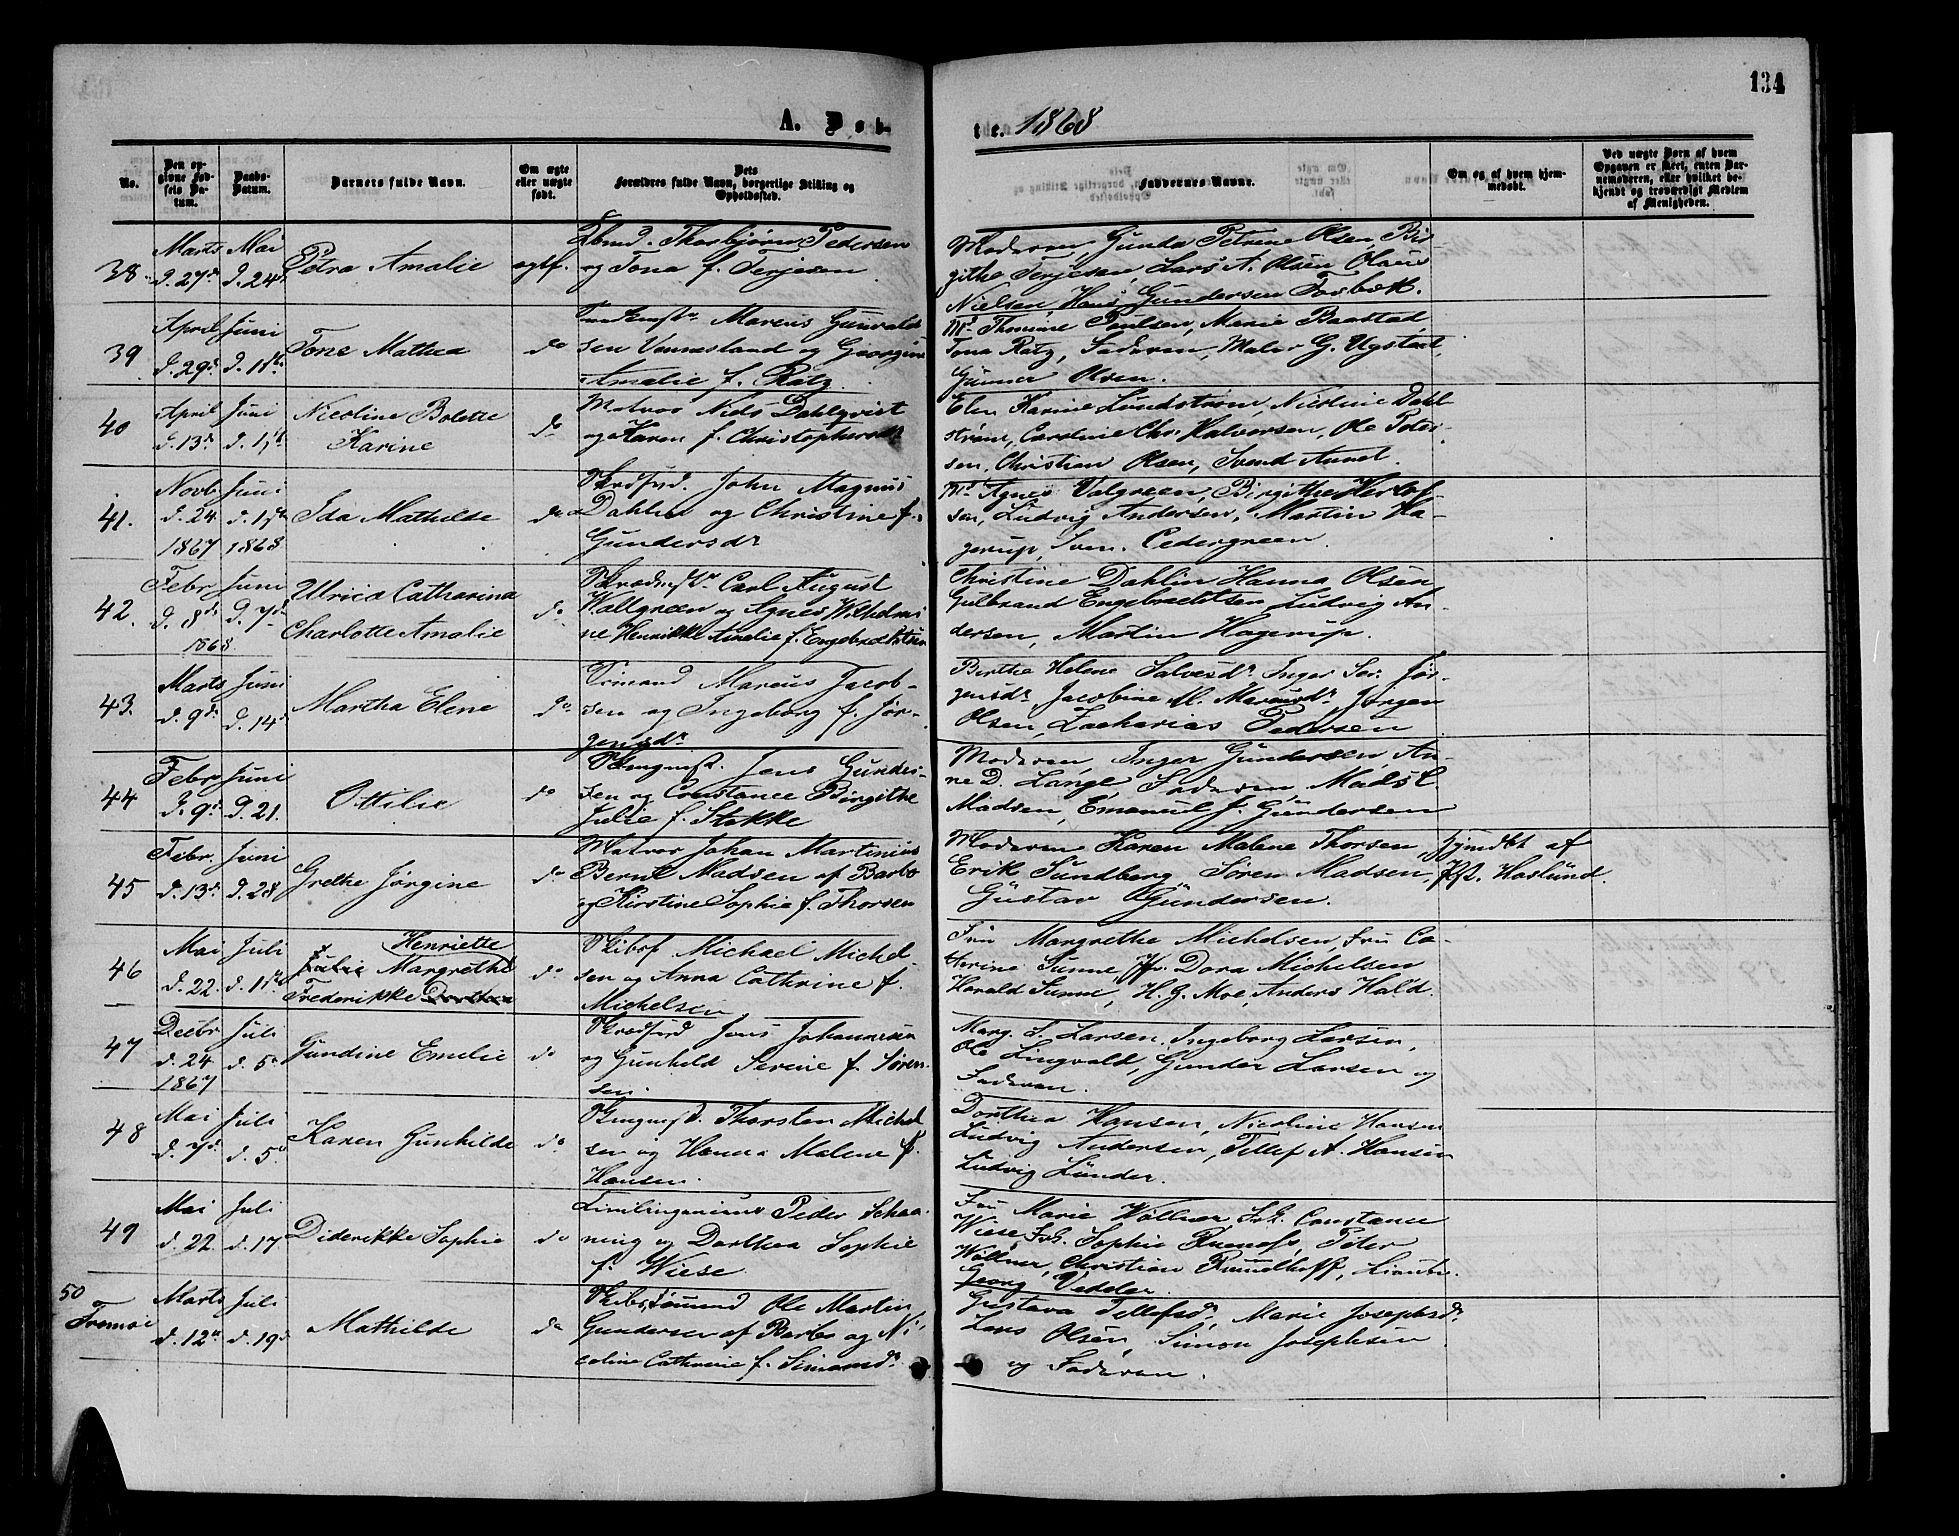 134
A. Døb-
te. 1868
No.
Den opgivne Fødsels Datum.
Daabs-Datum.
Barnets fulde Navn.
Om ægte eller uægte født.
Dets Forældres fulde Navn, borgerlige Stilling og Opholdssted.
Faddernes Navne.
Om og af hvem hjemmedøbt.
Ved uægte Børn af hvem Opgaven er skeet, enten Barnemoderen, eller hvilket bekjendt og troværdigt Medlem af Menigheden.
38
Marts
d. 27d
Mai
d. 24d
Petra Amalie
egtf.
Thorbjørn Pedersen
og Tona f. Terjesen
Moderen, Gunda Petrine Olsen, Bir
githe Terjesen, Lars A. Olsen, Olaus
Nielsen, Hans Gundersen Torbæk.
39
April
d. 29d
Juni
d. 1ste
Tone Mathea
do
Marcus Gunvald
sen Vennesland og Georgine
Amalie f. Rätz
Md Thomine Paulsen, Marie Baastad
Tona Rätz, Faderen, Maler G. Ugstad,
Gunner Olsen.
40
April
d. 13d
Juni
d. 1ste
Nicoline Bolette
Karine
do
Matros Niels Dahlqvist
og Karen f. Christophersdr
Elen Karine Lundstrøm, Nicoline Dahl
strøm, Caroline Chr. Halvorsen, Ole Peter
sen, Christian Olsen, Svend Aanet
41.
Novb
d. 24
1867
Juni
d. 1ste
1868
Ida Mathilde
do
Skrædsvd. John Magnus
Dahlin og Christine f.
Gundersdr
Md Agnes Valgreen, Birgithe
sen, Ludvig Andersen, Martin Ha-
gerup, Sven. Cedergreen
42.
Febr
d. 8de
1868
Juni
d. 7d
Ulrica Catharina
Charlotte Amalie
do
Skrædmstr Carl August
Wallgreen og Agnes Wilhelmi
ne Henrikke Amalie f. Engebrechtsen
Christine Dahlin Hanna Olsen
Gulbrand Engebrechtsen, Ludvig An
dersen, Martin Hagerup.
43.
Marts
d. 9de
Juni
d. 14d
Martha Elene
do
Marcus Jacob-
sen og Ingeborg f. Jør-
gensdr
Berthe Helene Salvesdr Inger Sev. Jør-
gensdr Jacobine M. Marcusdr, Jørgen
Olsen, Zacharias Pedersen
44
Febr
d. 9d
Juni
d. 21.
Ottilie
do
Jens Gunder-
sen og Constance Birgithe
Julie f. Stokke
Moderen, Inger Gundersen, An-
ne D. Lange, Faderen, Mads C.
Madsen, Emanuel J. Gundersen
45
Febr.
d. 13d
Juni
d. 28
Grethe Jørgine
do
Matros Johan Martinius
Bernt Madsen af Barbo
og Kirstine Sophie f. Thorsen
Moderen Karen Malene Thorsen,
Erik Sundberg Søren Madsen,
Gustav Gundersen.
Hjemdbt af
Pst. Haslund.
46
Mai
d. 22.
Juli
d. 1ste
Henriette
Julie Margrethe
Frederikke Dorthea
do
Skibsf Michael Michel-
sen og Anna Cathrine f.
Michelsen
Fru Margrethe Michelsen, Fru Ca-
therine Sunne, Jfr. Dora Michelsen
Harald Sunne, H. G. Moe, Anders Hald.
47
Decbr
d. 24
1867
Juli
d. 5d
Gundine Emelie
do
Skrædsvd Jens Johannesen
og Gunhild Serine f. Søren-
sen
Marg. S. Larsen, Ingeborg Larsen,
Ole Lingvald, Gunder Larsen og
Faderen.
48
Mai
d. 7d
Juli
d. 5d
Karen Gunhilde
do
Thorsten Michel
sen og Hanna Malene f.
Hansen.
Dorthea Hansen, Nicoline Hansen
Ludvig Andersen, Tellef A. Hansen
Ludvig Lunder.
49
Mai
d. 22.
Juli
d. 17
Diderikke Sophie
do
Civilingenieur Peder Schan
ning og Dorthea Sophie
f. Wiese
Fru Marie Wøllner, Frk. Constance
Wiese, Frk. Sophie Peter
Wøllner, Christian Rundhoff,
Georg Vedeler.
50
Tromøe
Marts
d. 12te
Juli
d. 19d
Mathilde
do
Skibstømmd Ole Martin
Gundersen af Barbo og Ni-
coline Cathrine f. Simonsdr
Gustava Tellefsdr, Marie Josephsdr
Lars Olsen, Simon Josephsen
og Faderen.